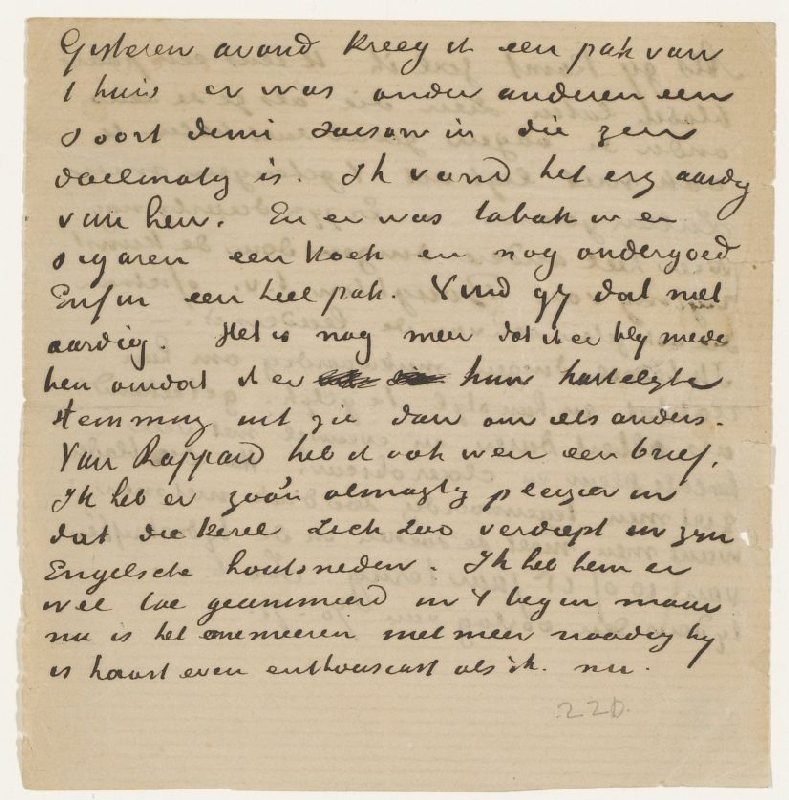 Gisteren avond kreeg ik een pak van
t huis er was onder anderen een
soort demi saison in die zeer
doelmatig is. Ik vond het erg aardig
van hen. En er was tabak in en
sigaren een koek en nog ondergoed
Enfin een heel pak. Vind gy dat niet
aardig. Het is nog meer dat ik er bly mede
ben omdat ik er hun hartelyke
stemming uit zie dan om iets anders.
Van Rappard heb ik ook weer een brief.
Ik heb er zoo'n almagtig pleizier in
dat die kerel zich zoo verdiept in zyn
Engelsche houtsneden. Ik heb hem er
wel toe geanimeerd in 't begin maar
nu is het animeeren niet meer noodig hy
is haast even enthousiast als ik. nu.
220.